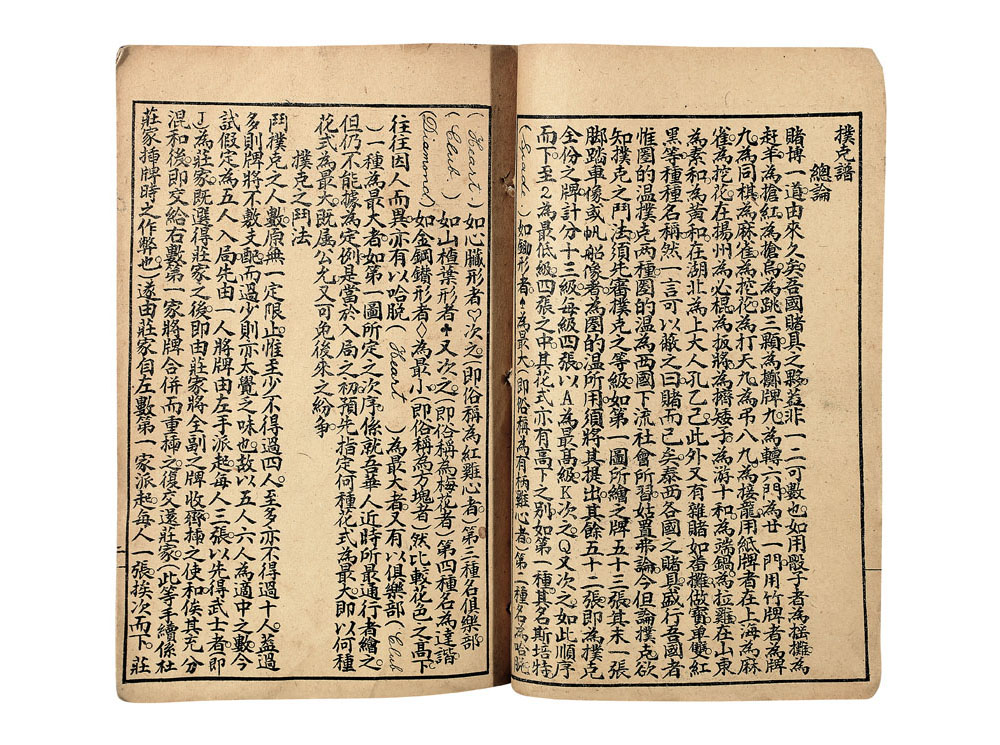 撲克譜
總論
賭博一道由來久矣吾國賭具之夥益非一二可數也如用骰子者為摇攤為
赶羊為搶紅為搶烏為跳三顆為擲牌九為轉六門為廿一門用竹牌者為牌
九為同棋為麻雀為挖花為打天九為弔八九為接龍用紙牌者在上海為麻
雀為挖花在揚州為必棍為扳將為擠矮子為游十和為端鍋為拉雞在山東
為素和為黄和在湖北為上大人孔乙己此外又有雜賭如番攤做寳單雙紅
黑等種種名稱然一言可以蔽之曰賭而已矣泰西各國之賭具盛行吾國者
惟圏的温撲克两種圏的温為西國下流社會所習姑置弗論今但論撲克欲
知撲克之鬥法須先審撲克之等級如第一圖所繪之牌五十三張其末一張
脚踏車像或帆船像者為圏的温所用須將其提出其餘五十二張即為撲克
全份之牌計分十三級每級四張以A為最高級K次之Q又次之如此順序
而下至2為最低級四張之中其花式亦有高下之别如第一種其名斯培特
(Spade)如鋤形者♠為最大(即俗稱為有柄雞心者)第二種名為哈脱
(Heart)如心臟形者♡次之(即俗稱為紅雞心者)第三種名俱樂部
(Club)如山楂葉形者♣又次之(即俗稱為梅花者)第四種名為達謟
(Diamond)如金鋼鑽形者◇為最小(即俗稱為方塊者)然比較花色之高下
往往因人而異亦有以哈脱(Heart)為最大者又有以俱樂部(Club
)一種為最大者如第一圖所定之次序係就吾華人近時所最通行者繪之
但仍不能據為定例是當於入局之初預先指定何種花式為最大即以何種
花式為最大既属公允又可免後來之紛爭
撲克之鬥法
鬥撲克之人數原無一定限止惟至少不得過四人至多亦不得過十人蓋過
多則牌將不敷支配而過少則亦太覺乏味也故以五人六人為適中之數今
試假定為五人入局先由一人將牌由左手派起每人三張以先得武士者(即
J)為莊家既選得莊家之後即由莊家將全副之牌收齊揷之使和俟其充分
混和後即交給右數第一家將牌合併而重揷之復交還莊家(此等手續係杜
莊家揷牌時之作弊也)遂由莊家自左數第一家派起每人一張挨次而下莊
二